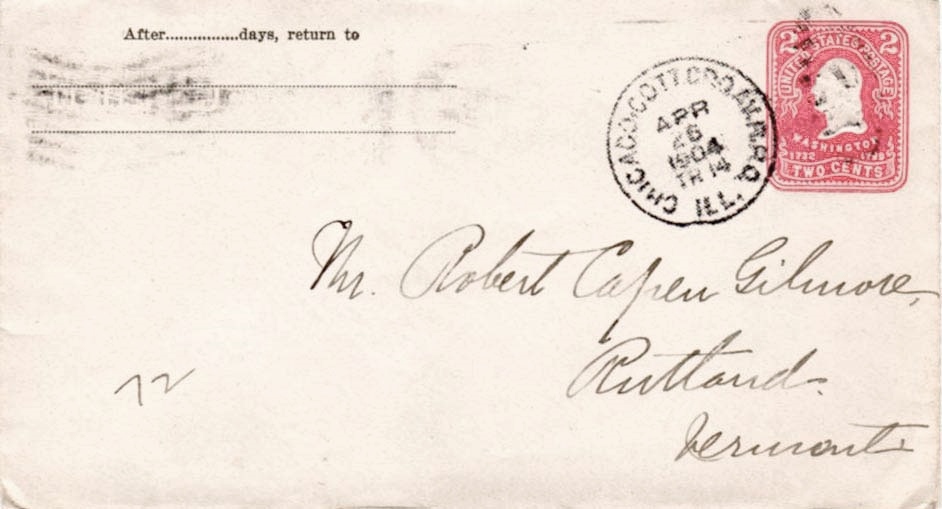 After................days, return to
2 2
UNITED STATES POSTAGE
WASHINGTON
1732 1799
TWO CENTS
CHICAGO, COTT GRO. AV. R.P.O.
APR
26
1904
TR 14
ILL.
Mr. Robert Capen Gilmore,
Rutland
Vermont
72